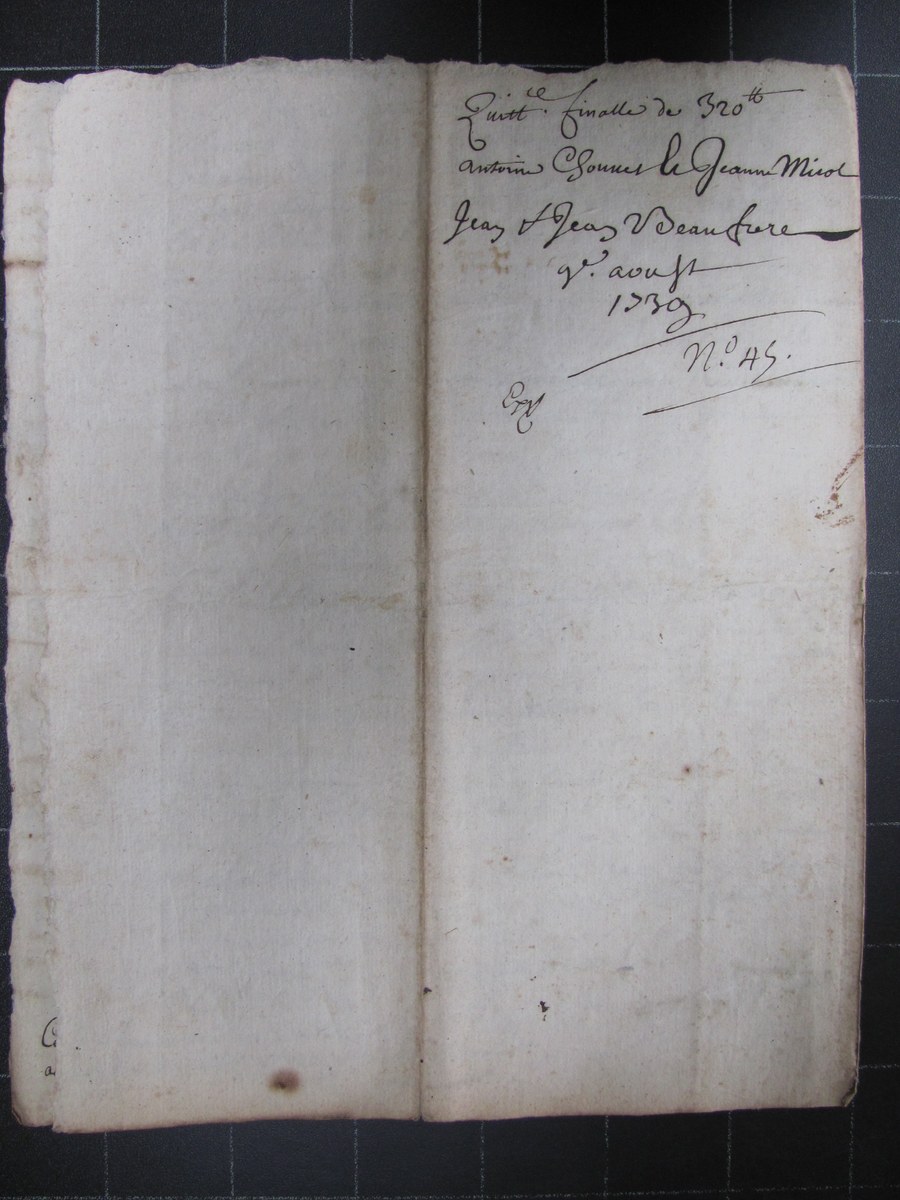 Quittce. finalle de 320tt
antoine Chouvet & Jeanne Micol
Jean & Jean Beaufrere
9e. aoust
1739
N.o 45.
Exp